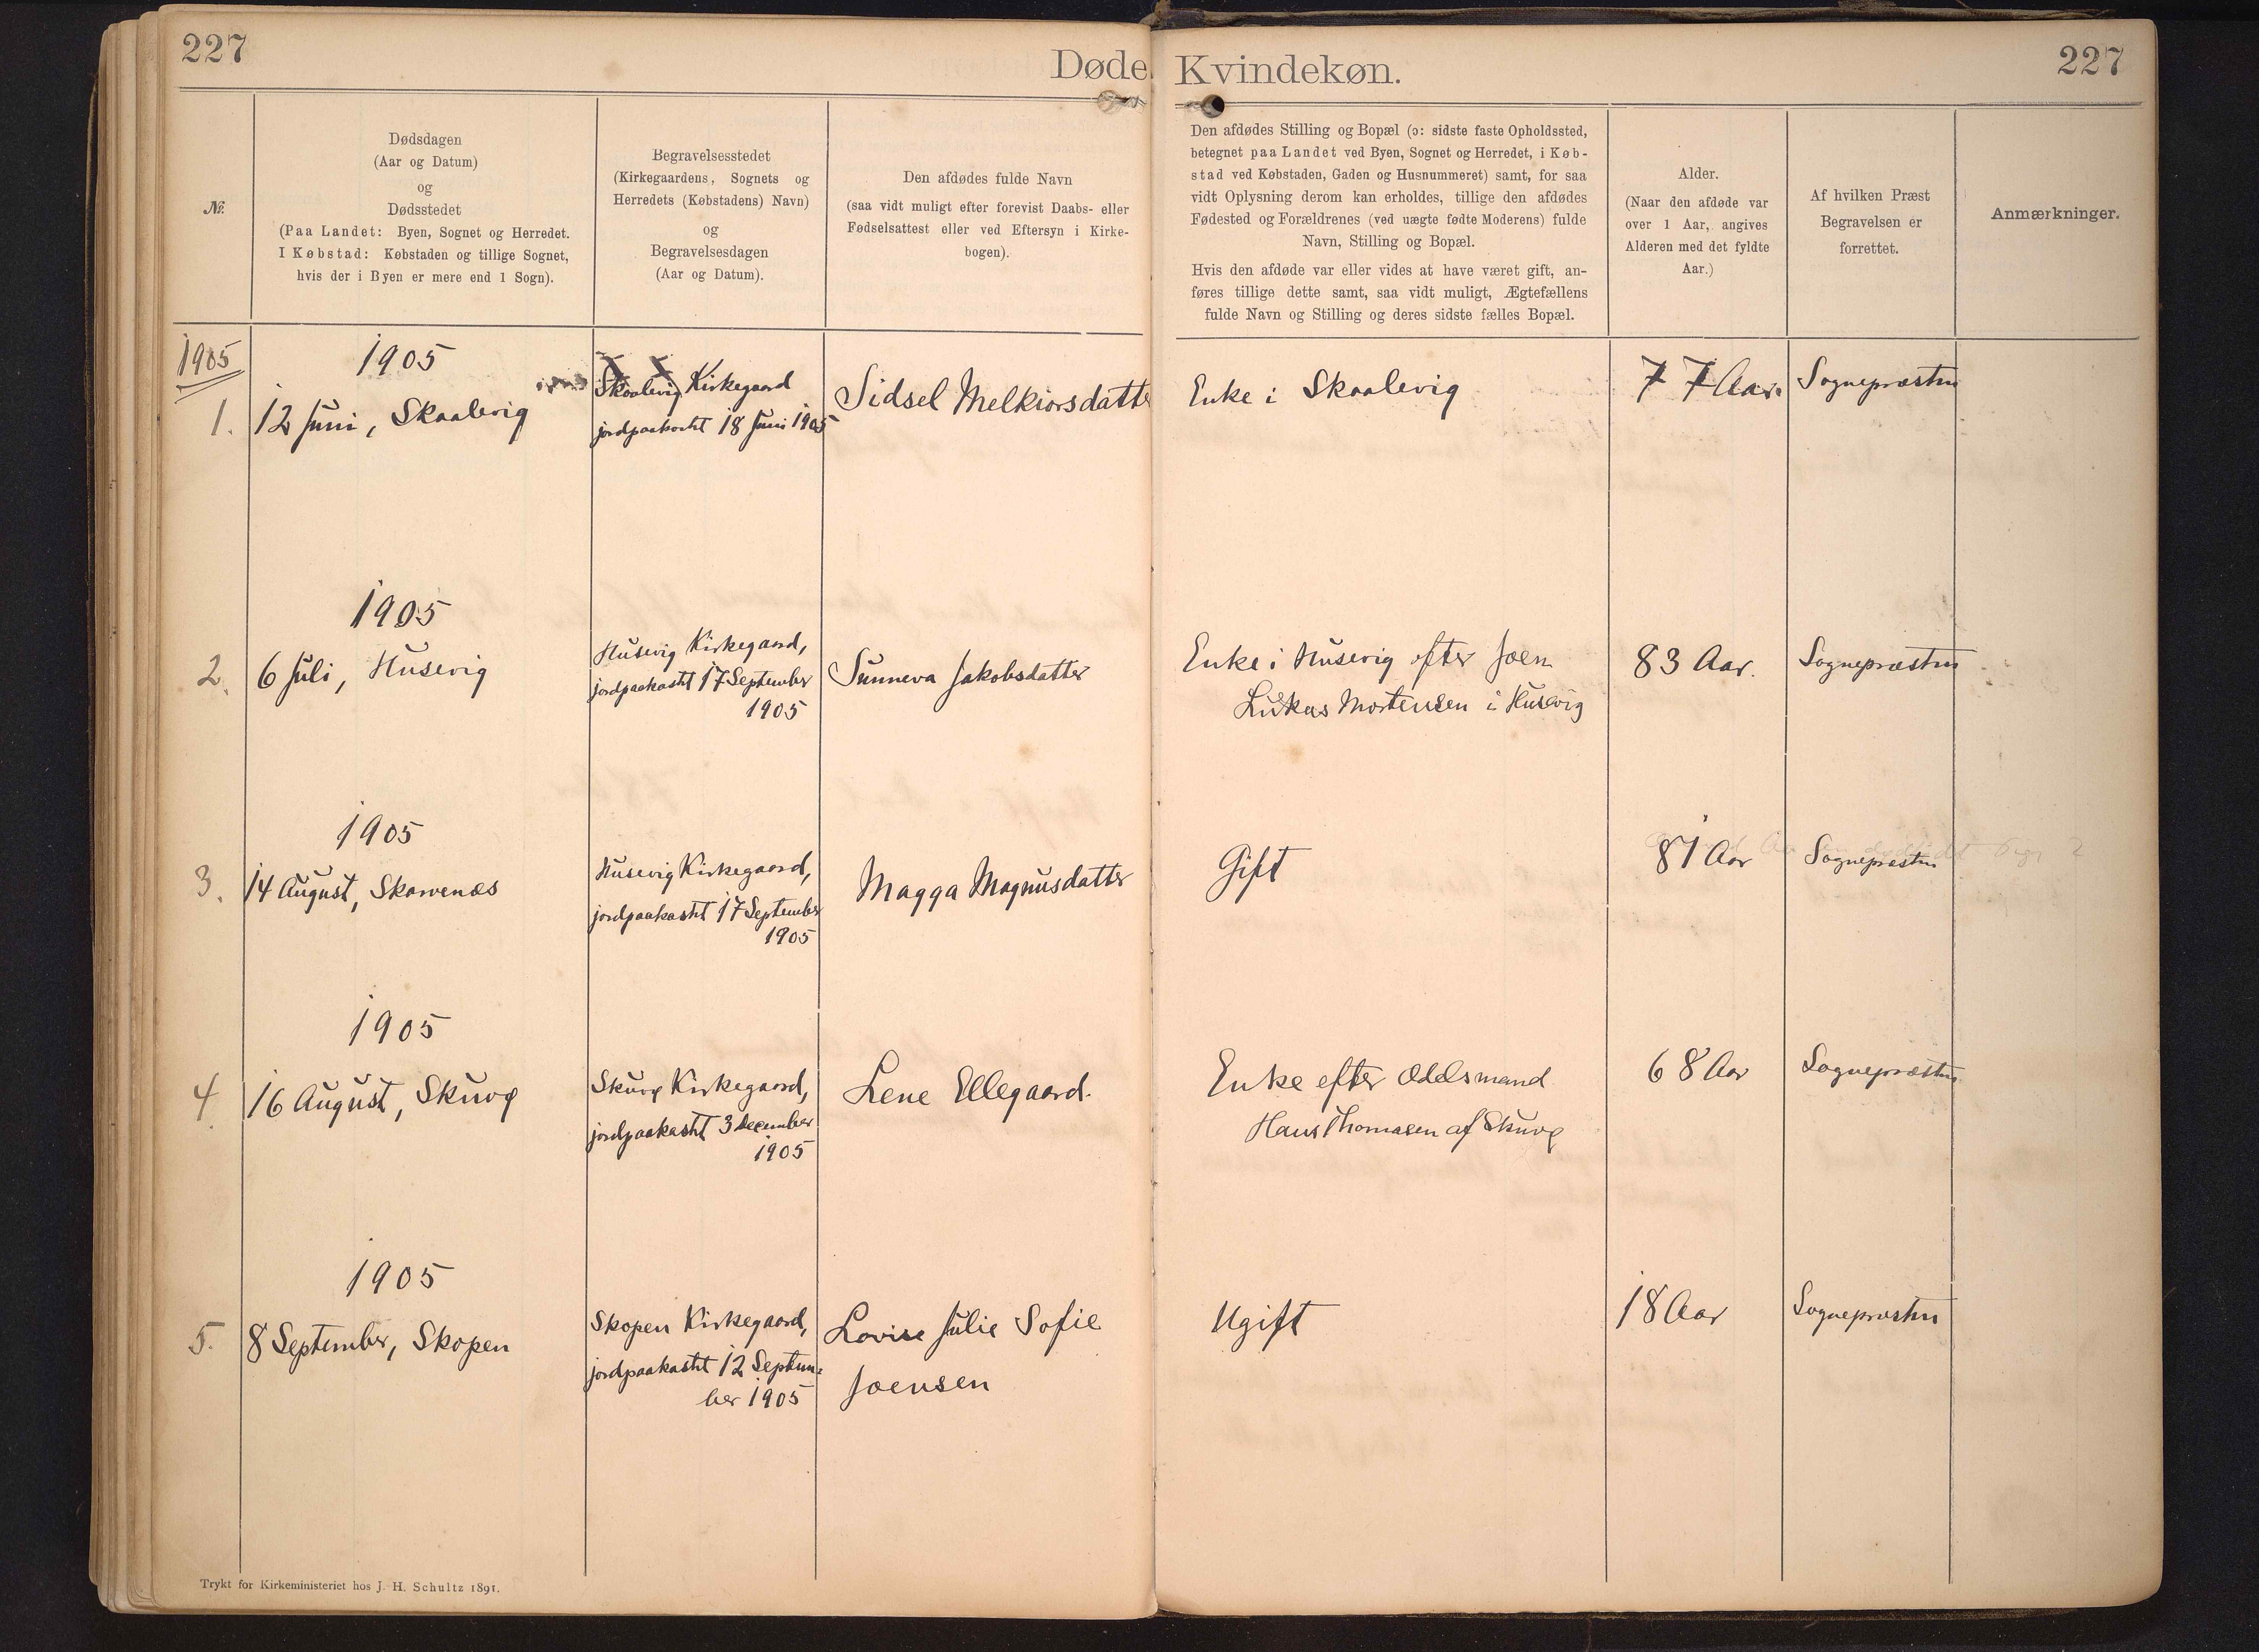 227
Døde Kvindekøn.
227
№.
Dødsdagen
(Aar og Datum)
og
Dødsstedet
(Paa Landet: Byen, Sognet og Herredet.
I Købstad: Købstaden og tillige Sognet,
hvis der i Byen er mere end 1 Sogn).
Begravelsesstedet
(Kirkegaardens, Sognets og
Herredets (Købstadens) Navn)
og
Begravelsesdagen
(Aar og Datum).
Den afdødes fulde Navn
(saa vidt muligt efter forevist Daabs- eller
Fødselsattest eller ved Eftersyn i Kirke-
bogen).
Den afdødes Stilling og Bopæl (ɔ: sidste faste Opholdssted,
betegnet paa Landet ved Byen, Sognet og Herredet, i Køb-
stad ved Købstaden, Gaden og Husnummeret) samt, for saa
vidt Oplysning derom kan erholdes, tillige den afdødes
Fødested og Forældrenes (ved uægte fødte Moderens) fulde
Navn, Stilling og Bopæl.
Hvis den afdøde var eller vides at have været gift, an-
føres tillige dette samt, saa vidt muligt, Ægtefællens
fulde Navn og Stilling og deres sidste fælles Bopæl.
Alder.
(Naar den afdøde var
over 1 Aar, angives
Alderen med det fyldte
Aar.)
Af hvilken Præst
Begravelsen er
forrettet.
Anmærkninger.
1905
1.
1905
12 Juni, Skaalevig
Skaalevig Kirkegaard
jordpaakastet 18 Juni 1905
Sidsel Melkiorsdatter
Enke i Skaalevig
77 Aar.
Sognepræsten
2.
1905
6 Juli, Husevig
Husevig Kirkegaard,
jordpaakastet 17 September
1905
Sunneva Jakobsdatter
Enke i Husevig efter Joen
Lukas Mortensen i Husevig
83 Aar.
Sognepræsten
3.
1905
14 August, Skarvenæs
Husevig Kirkegaard,
jordpaakastet 17 September
1905
Magga Magnusdatter
Gift
81 Aar
Sognepræsten
4.
1905
16 August, Skuvø
Skuvø Kirkegaard,
jordpaakastet 3 December
1905
Lene Ellegaard.
Enke efter Odelsmand
Hans Thomasen af Skuvø
68 Aar
Sognepræsten
5.
1905
8 September, Skopen
Skopen Kirkegaard,
jordpaakastet 12 Septem=
ber 1905
Lovise Julie Sofie
Joensen
Ugift
18 Aar
Sognepræsten
Trykt for Kirkeministeriet hos J. H. Schultz 1891.